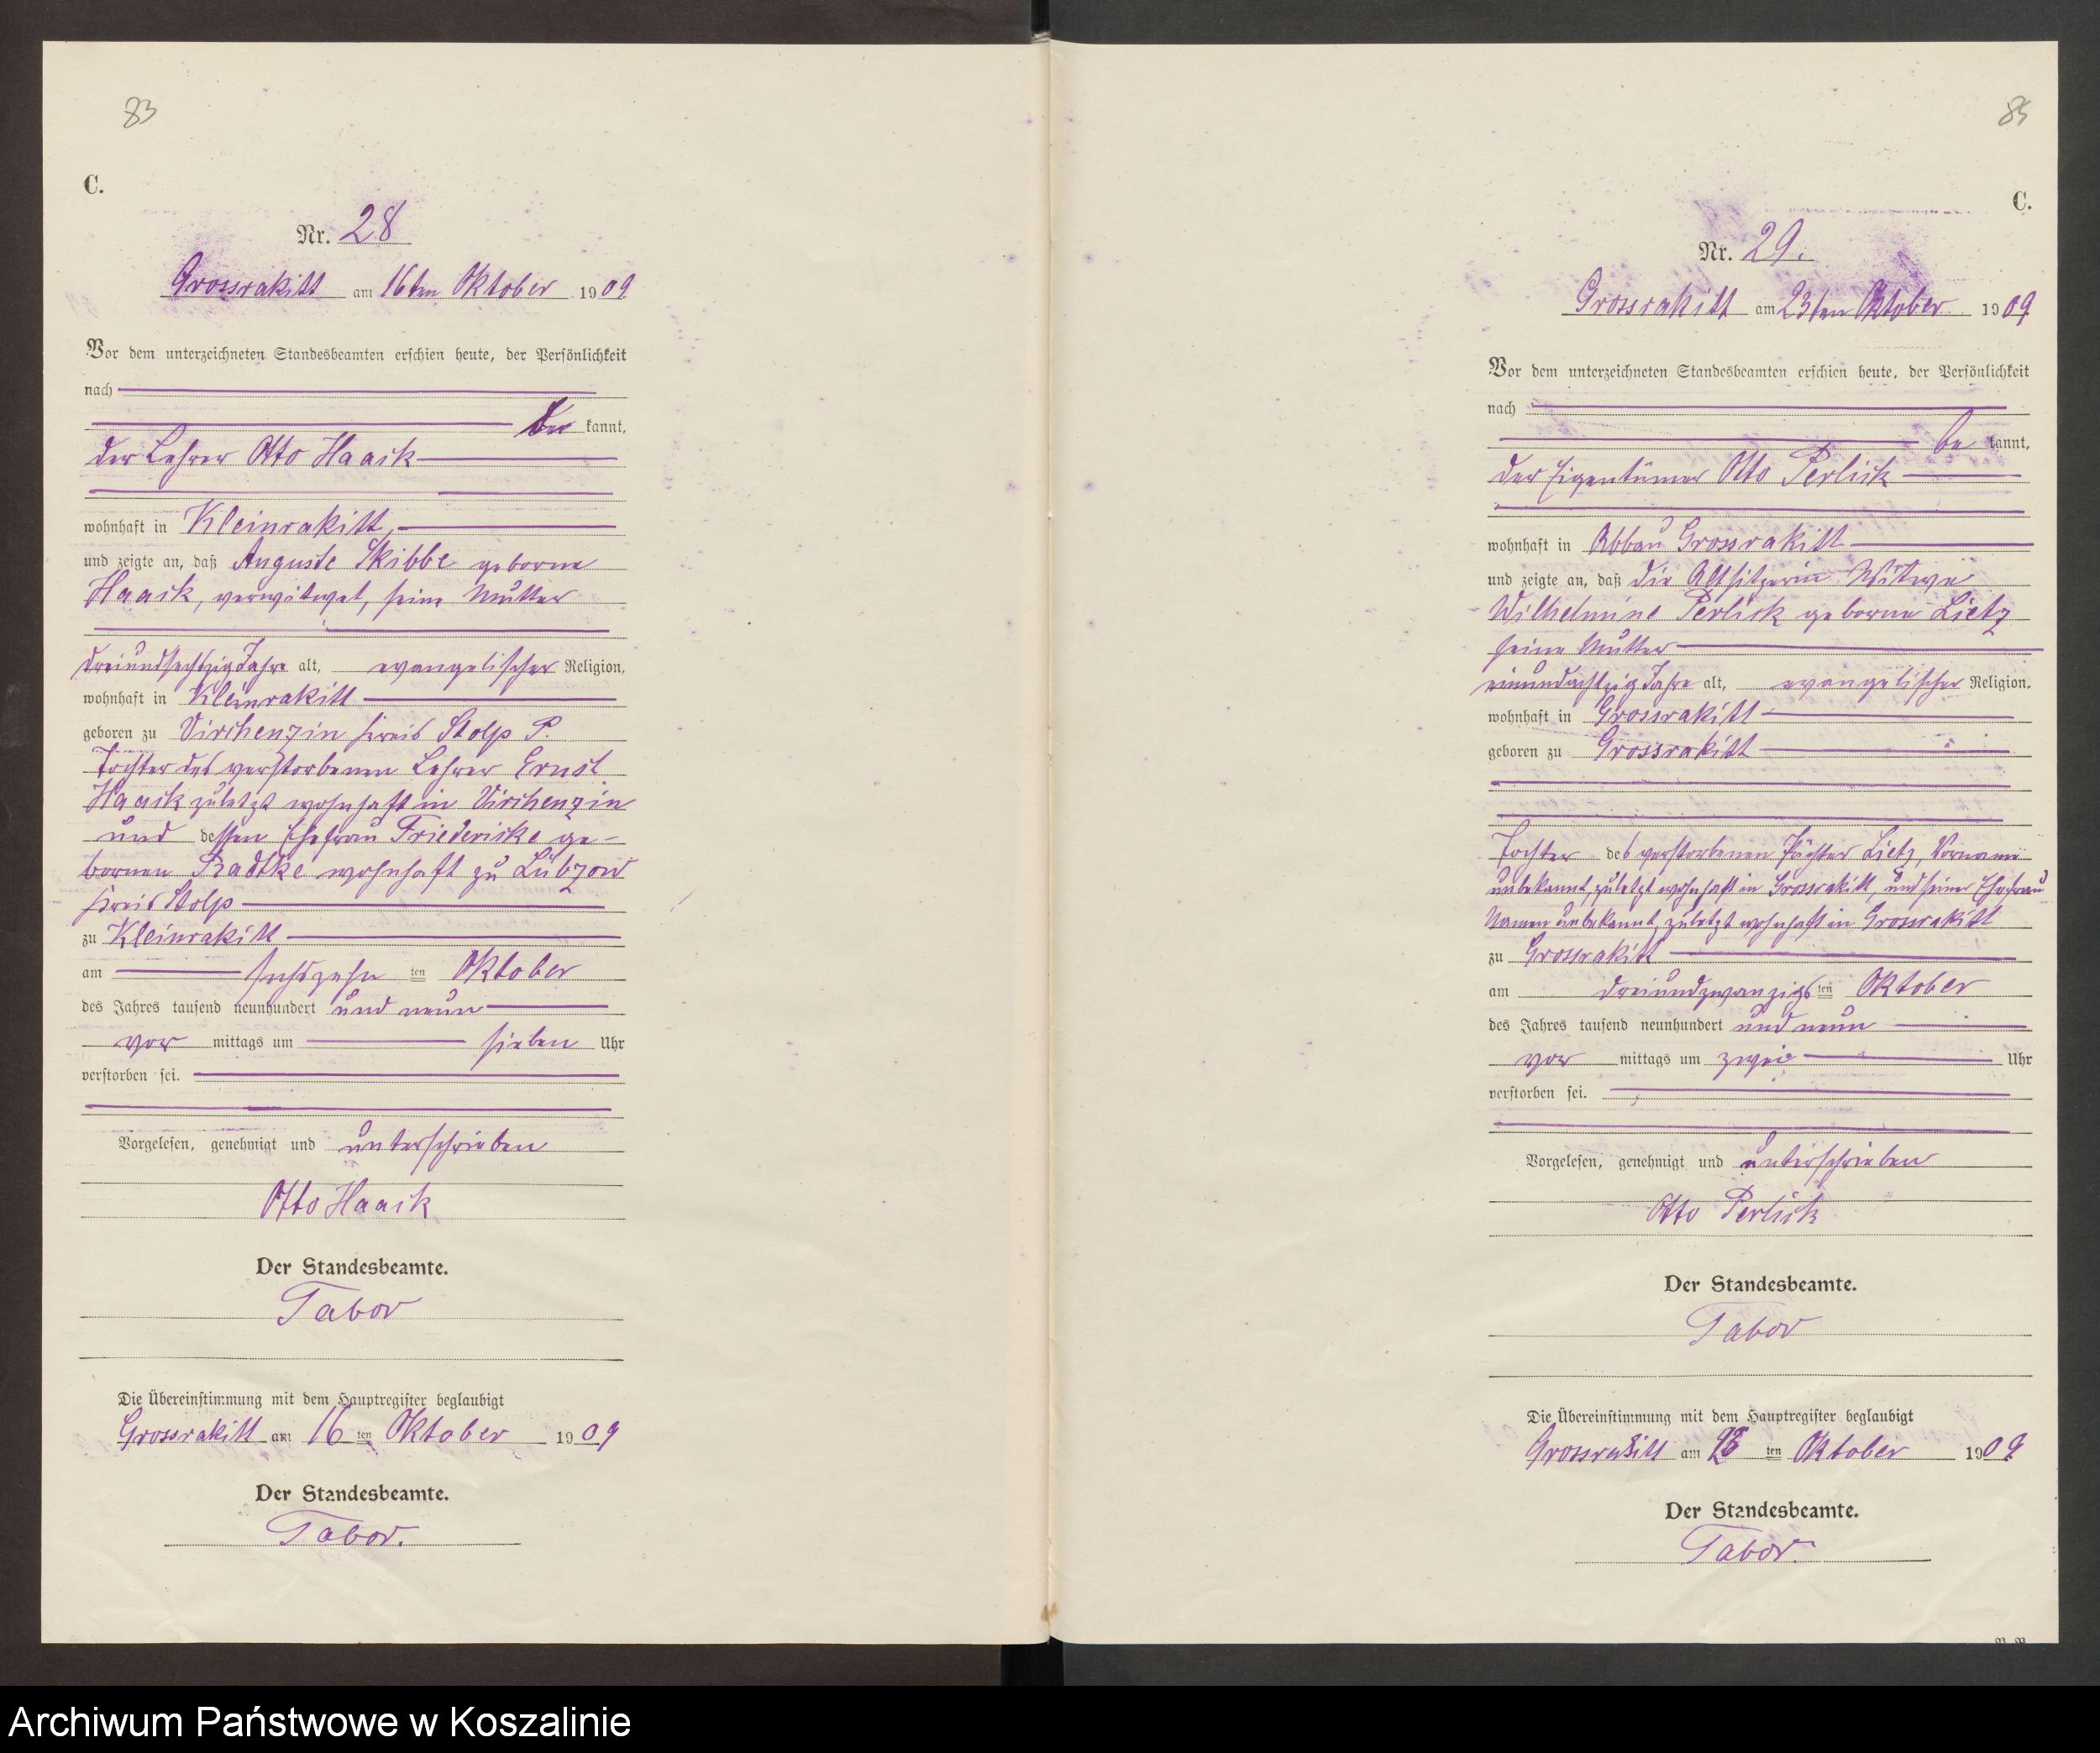 83
C.
Nr. 28
Grossrakitt am 16ten Oktober 1909
Vor dem unterzeichneten Standesbeamten erschien heute, der Persönlichkeit
nach
be kannt,
der Lehrer Otto Haack
wohnhaft in Kleinrakitt,
und zeigte an, daß Auguste Skibbe geborne
Haack, verwitwet, seine Mutter
dreiundsechzig Jahre alt, evangelischer Religion,
wohnhaft in Kleinrakitt
geboren zu Virchenzin Kreis Stolp P.
Tochter des verstorbenen Lehrer Ernst
Haack zuletzt wohnhaft in Virchenzin
und dessen Ehefrau Friedericke ge-
bornen Radtke wohnhaft zu Lübzow
Kreis Stolp
zu Kleinrakitt
am sechszehn ten Oktober
des Jahres tausend neunhundert und neun
vor mittags um sieben Uhr
verstorben sei.
Vorgelesen, genehmigt und unterschrieben
Otto Haack
Der Standesbeamte.
Tabor
Die Übereinstimmung mit dem Hauptregister beglaubigt
Grossrakitt am 16 ten Oktober 1909
Der Standesbeamte.
Tabor.
85
C.
Nr. 29.
Grossrakitt am 23ten Oktober 1909
Vor dem unterzeichneten Standesbeamten erschien heute, der Persönlichkeit
nach
be kannt,
der Eigentümer Otto Perlick
wohnhaft in Abbau Grossrakitt
und zeigte an, daß die Altsitzerin Witwe
Wilhelmine Perlick geborne Lietz
seine Mutter
einundachtzig Jahre alt, evangelischer Religion,
wohnhaft in Grossrakitt
geboren zu Grossrakitt
Tochter des verstorbenen Pächter Lietz, Vorname
unbekannt, zuletzt wohnhaft in Grossrakitt, und seiner Ehefrau
Namen unbekannt, zuletzt wohnhaft in Grossrakitt
zu Grossrakitt
am dreiundzwanzigs ten Oktober
des Jahres tausend neunhundert und neun
vor mittags um zwei Uhr
verstorben sei.
Vorgelesen, genehmigt und unterschrieben
Otto Perlick
Der Standesbeamte.
Tabor
Die Übereinstimmung mit dem Hauptregister beglaubigt
Grossrakitt am ten Oktober 1909
Der Standesbeamte.
Tabor.
Archiwum Państwowe w Koszalinie